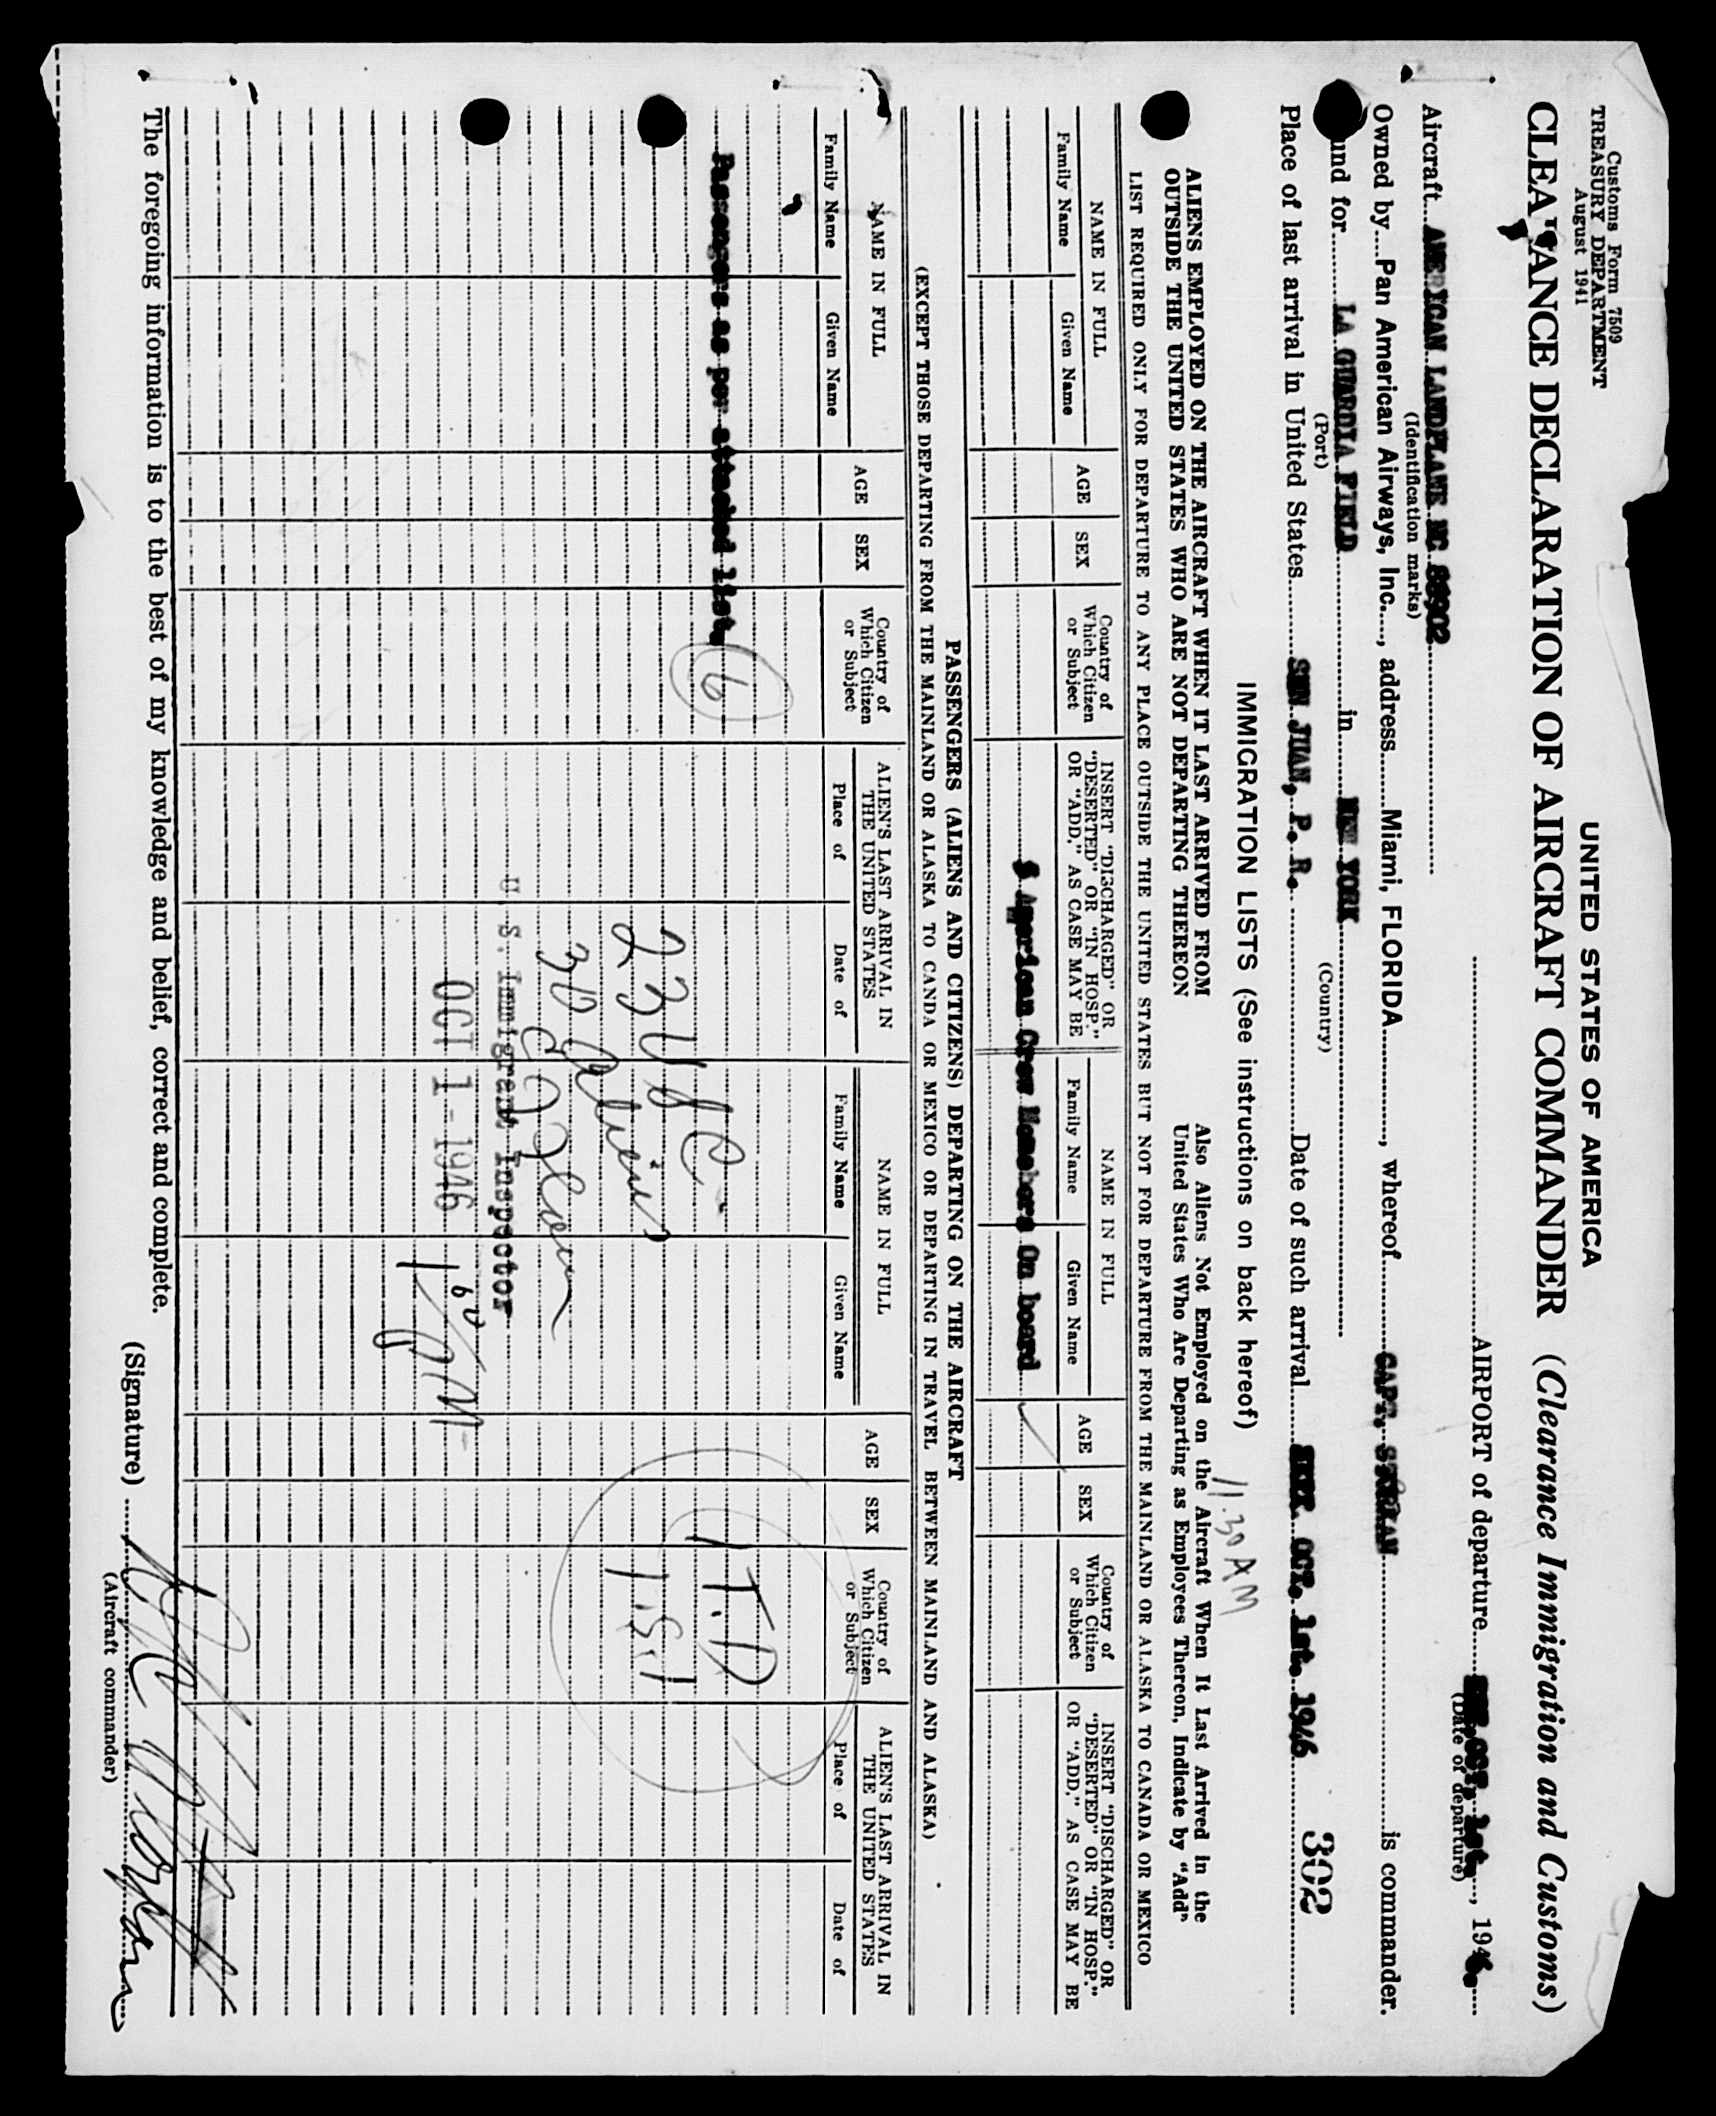 Customs Form 7509
TREASURY DEPARTMENT
August 1941
UNITED STATES OF AMERICA
CLEARANCE DECLARATION OF AIRCRAFT COMMANDER (Clearance Immigration and Customs)
AIRPORT of departure OCT. 1st., 1946.
(Date of departure)
Aircraft AMERICAN LANDPLANE NC 88902
(Identification marks)
Owned by Pan American Airways, Inc., address Miami, FLORIDA, whereof CAPT. is commander.
und for LA GUARDIA FIELD in NEW YORK
(Port) (Country)
Place of last arrival in United States SAN JUAN, P. R. Date of such arrival OCT. 1st. 1946
302
11:30 AM
IMMIGRATION LISTS (See instructions on back hereof)
ALIENS EMPLOYED ON THE AIRCRAFT WHEN IT LAST ARRIVED FROM
OUTSIDE THE UNITED STATES WHO ARE NOT DEPARTING THEREON
Also Aliens Not Employed on the Aircraft When It Last Arrived in the
United States Who Are Departing as Employees Thereon, Indicate by "Add"
LIST REQUIRED ONLY FOR DEPARTURE TO ANY PLACE OUTSIDE THE UNITED STATES BUT NOT FOR DEPARTURE FROM THE MAINLAND OR ALASKA TO CANADA OR MEXICO
NAME IN FULL
Family Name Given Name
AGE
SEX
Country of
Which Citizen
or Subject
INSERT "DISCHARGED" OR
"DESERTED" OR "IN HOSP."
OR "ADD," AS CASE MAY BE
NAME IN FULL
Family Name Given Name
AGE
SEX
Country of
Which Citizen
or Subject
INSERT "DISCHARGED" OR
"DESERTED" OR "IN HOSP."
OR "ADD," AS CASE MAY BE
American Crew Memebers On board
PASSENGERS (ALIENS AND CITIZENS) DEPARTING ON THE AIRCRAFT
(EXCEPT THOSE DEPARTING FROM THE MAINLAND OR ALASKA TO CANDA OR MEXICO OR DEPARTING IN TRAVEL BETWEEN MAINLAND AND ALASKA)
NAME IN FULL
Family Name Given Name
AGE
SEX
Country of
Which Citizen
or Subject
ALIEN'S LAST ARRIVAL IN
THE UNITED STATES
Place of Date of
NAME IN FULL
Family Name Given Name
AGE
SEX
Country of
Which Citizen
or Subject
ALIEN'S LAST ARRIVAL IN
THE UNITED STATES
Place of Date of
Passengers as per attached list.
6
1 T.D
1.S.1
23 USC
30 Aliens
U. S. Immigrant Inspector
OCT 1 - 1946
1 60 PM
The foregoing information is to the best of my knowledge and belief, correct and complete.
(Signature)
(Aircraft commander)